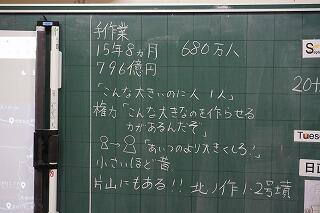 手作業
15年8ヵ月 680万人
796億円
「こんな大きいのに人 1人」
権力「こんな大きなのを作らせる
力があるんだぞ」
8→8 「あいつのより大きくしろ!」
小さいほど昔
片山にもある!! 北ノ作1・2号墳
20+
Tues
日直